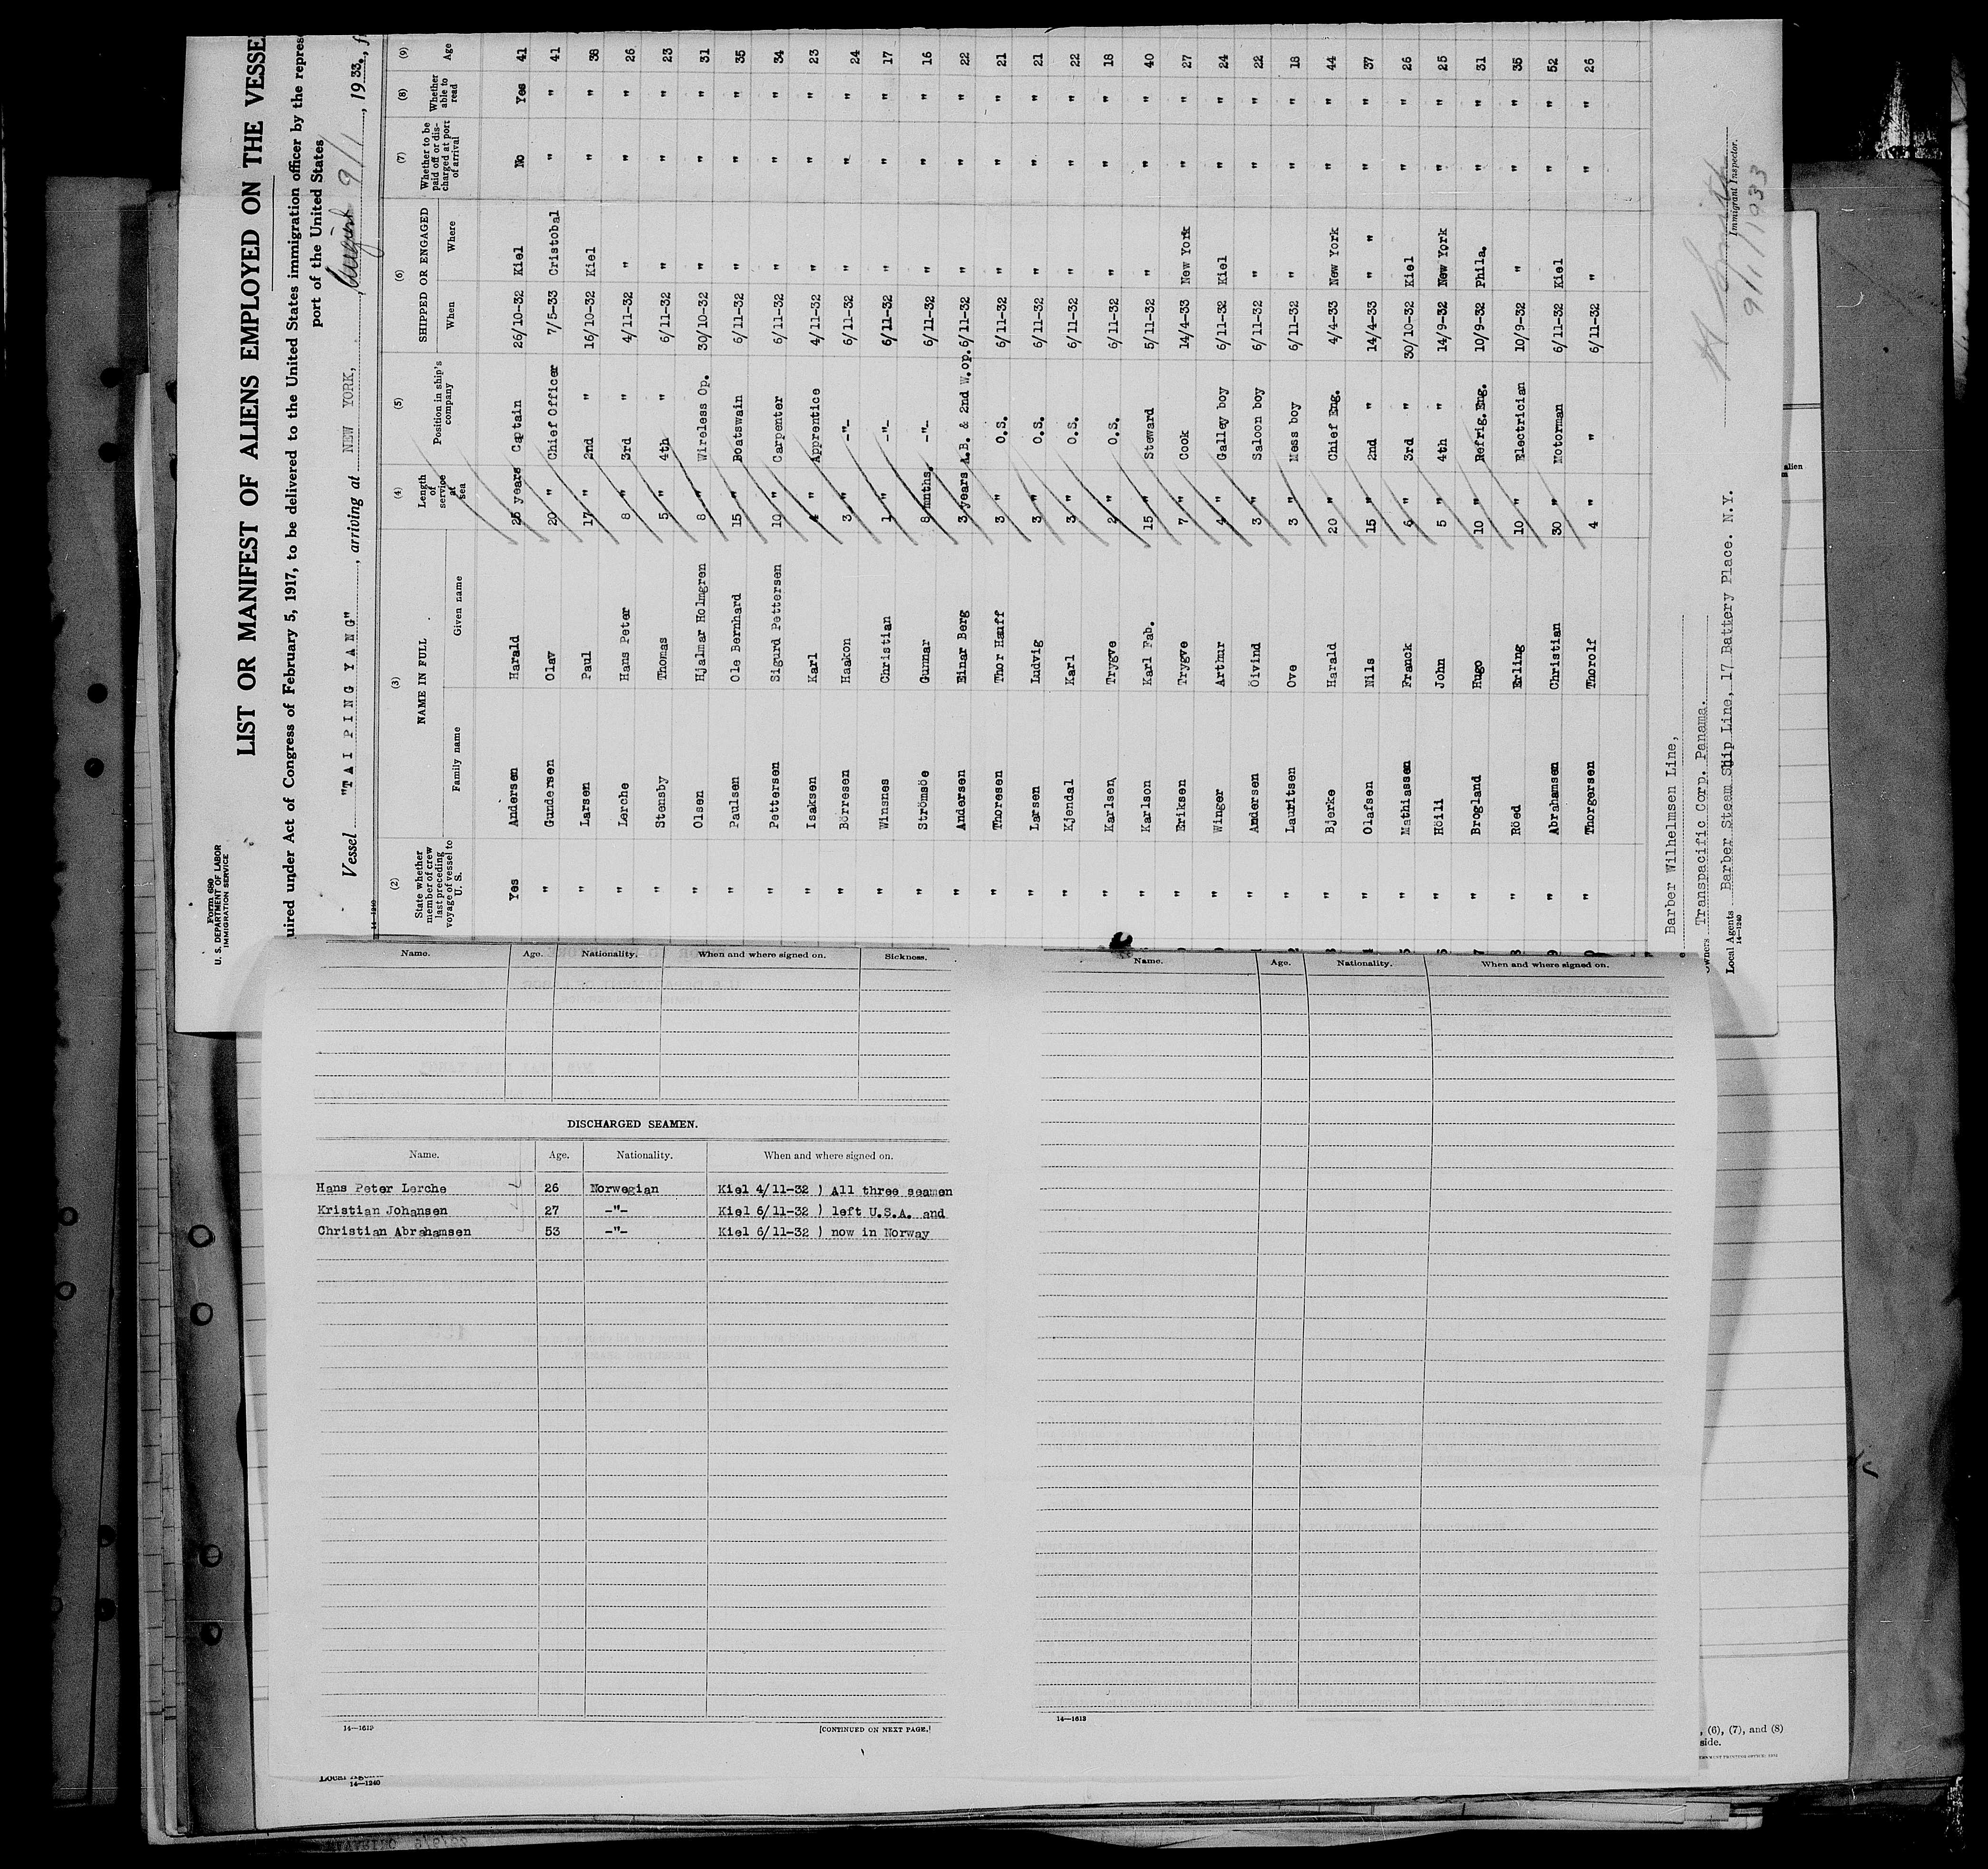 Form 680
U. S. DEPARTMENT OF LABOR
IMMIGRATION SERVICE
LIST OR MANIFEST OF ALIENS EMPLOYED ON THE VESSE
uired under Act of Congress of February 5, 1917, to be delivered to the United States immigration officer by the repres
port of the United States
Vessel "TAI PING YANG", arriving at NEW YORK, 9/1, 1933, f
14—1240
(2) (3) (4) (5) (6) (7) (8) (9)
State whether member of crew last preceding voyage of vessel to U. S. NAME IN FULL Family name Given name Length of service at sea Position in ship's company SHIPPED OR ENGAGED When Where Whether to be paid off or discharged at port of arrival Whether able to read Age
Yes Andersen Harald 25 years Captain 26/10-32 Kiel No Yes 41
" Gundersen Olav 20 " Chief Officer 7/5-33 Cristobal " " 41
" Larsen Paul 17 " 2nd " 16/10-32 Kiel " " 38
" Lerche Hans Peter 8 " 3rd " 4/11-32 " " " 26
" Stensby Thomas 5 " 4th " 6/11-32 " " " 23
" Olsen Hjalmar Holmgren 8 " Wireless Op. 30/10-32 " " " 31
" Paulsen Ole Bernhard 15 " Boatswain 6/11-32 " " " 35
" Pettersen Sigurd Pettersen 10 " Carpenter 6/11-32 " " " 34
" Isaksen Karl 4 " Apprentice 4/11-32 " " " 23
" Börresen Haakon 3 " -"- 6/11-32 " " " 24
" Winsnes Christian 1 " -"- 6/11-32 " " " 17
" Strömsöe Gunnar 8 mnths. -"- 6/11-32 " " " 16
" Andersen Einar Berg 3 years A.B. & 2nd W.op. 6/11-32 " " " 22
" Thoresen Thor Hauff 3 " O.S. 6/11-32 " " " 21
" Larsen Ludvig 3 " O.S. 6/11-32 " " " 21
" Kjendal Karl 3 " O.S. 6/11-32 " " " 22
" Karlsen Trygve 2 " O.S. 6/11-32 " " " 18
" Karlson Karl Fab. 15 " Steward 5/11-32 " " " 40
" Eriksen Trygve 7 " Cook 14/4-33 New York " " 27
" Winger Arthur 4 " Galley boy 6/11-32 Kiel " " 24
" Andersen Öivind 3 " Saloon boy 6/11-32 " " " 22
" Lauritsen Ove 3 " Mess boy 6/11-32 " " " 18
" Bjerke Harald 20 " Chief Eng. 4/4-33 New York " " 44
" Olafsen Nils 15 " 2nd " 14/4-33 " " " " 37
" Mathiassen Franck 6 " 3rd " 30/10-32 Kiel " " 26
" Höili John 5 " 4th " 14/9-32 New York " " 25
" Brogland Hugo 10 " Refrig. Eng. 10/9-32 Phila. " " 31
" Röed Erling 10 " Electrician 10/9-32 " " " 35
" Abrahamsen Christian 30 " Motorman 6/11-32 Kiel " " 52
" Thorgersen Thorolf 4 " " 6/11-32 " " " 26
Barber Wilhelmsen Line,
Owners Transpacific Corp. Panama.
Local Agents Barber Steam Ship Line, 17 Battery Place. N.Y.
14—1240
Immigrant Inspector.
9/1/1933
alien
Name. Age. Nationality. When and where signed on. Sickness.
DISCHARGED SEAMEN.
Name. Age. Nationality. When and where signed on.
Hans Peter Lerche 26 Norwegian Kiel 4/11-32 ) All three seamen
Kristian Johansen 27 -"- Kiel 6/11-32 ) left U.S.A. and
Christian Abrahamsen 53 -"- Kiel 6/11-32 ) now in Norway
14—1613
[CONTINUED ON NEXT PAGE.]
Name. Age. Nationality. When and where signed on.
14—1613
, (6), (7), and (8)
side.
14—1240